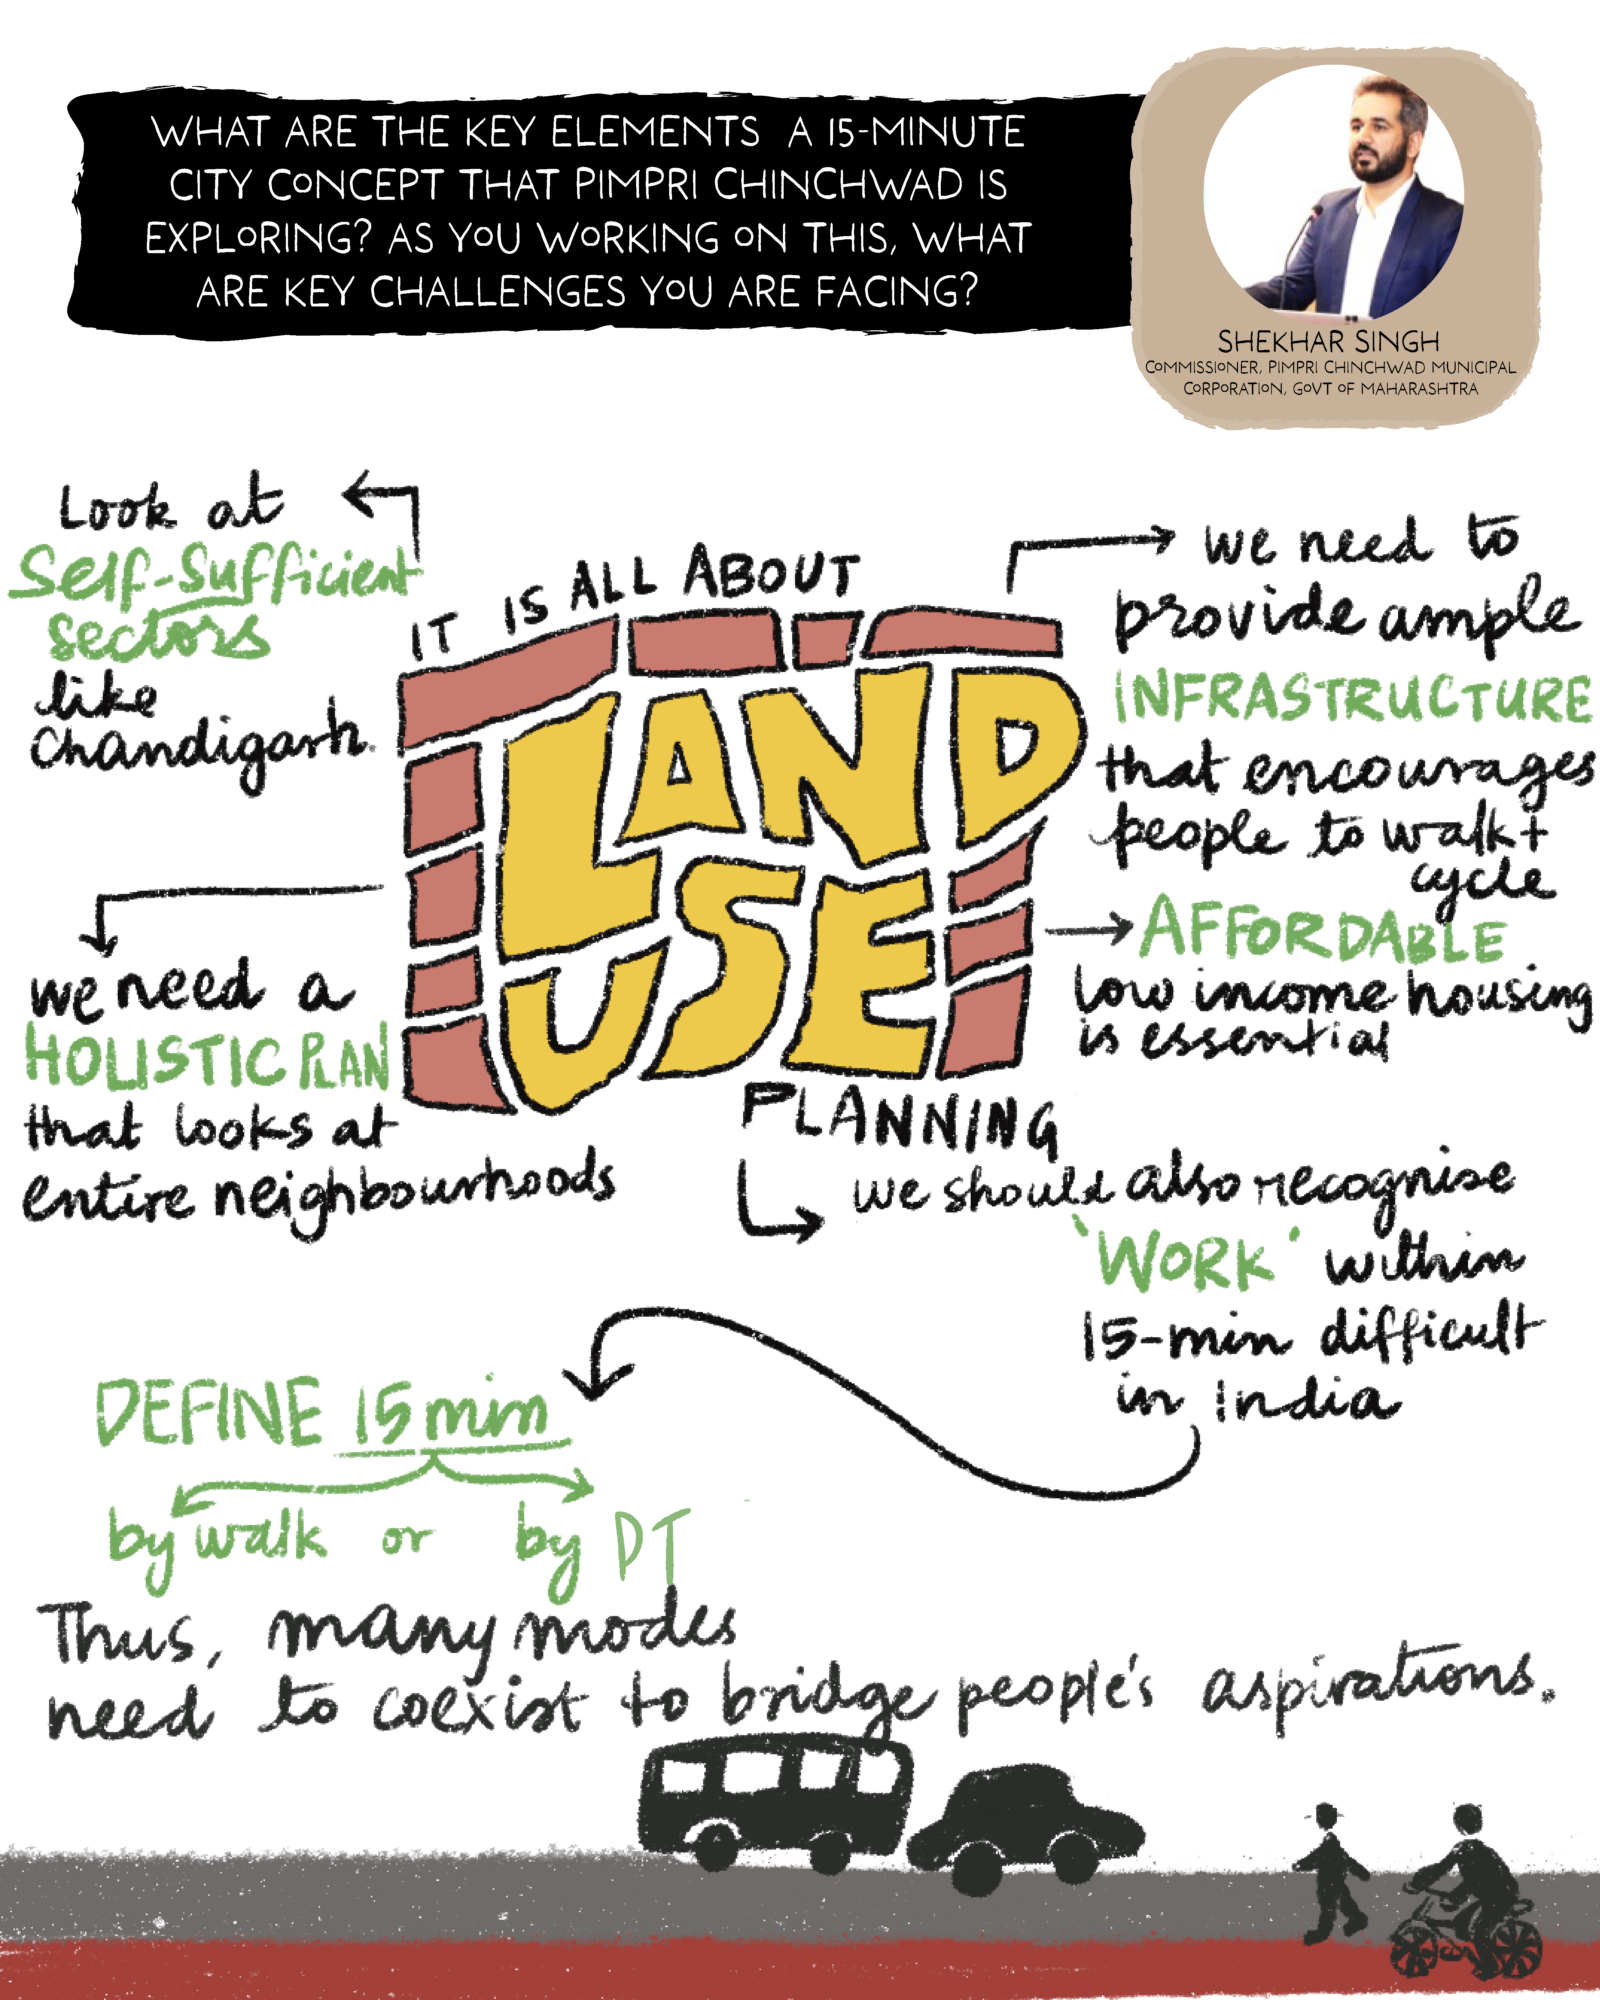 WHAT ARE THE KEY ELEMENTS A 15-MINUTE
CITY CONCEPT THAT PIMPRI CHINCHWAD IS
EXPLORING? AS YOU WORKING ON THIS, WHAT
ARE KEY CHALLENGES YOU ARE FACING?
SHEKHAR SINGH
COMMISSIONER, PIMPRI CHINCHWAD MUNICIPAL
CORPORATION, GOVT OF MAHARASHTRA
Look at
Self-Sufficient
Sectors
like
Chandigarh.
IT IS ALL ABOUT
LAND
USE
PLANNING
we need to
provide ample
INFRASTRUCTURE
that encourages
people to walk+
cycle
AFFORDABLE
low income housing
is essential
we need a
HOLISTIC PLAN
that looks at
entire neighbourhoods
we should also recognise
'WORK' within
15-min difficult
in India
DEFINE 15 min
by walk or by PT
Thus, many modes
need to coexist to bridge people's aspirations.